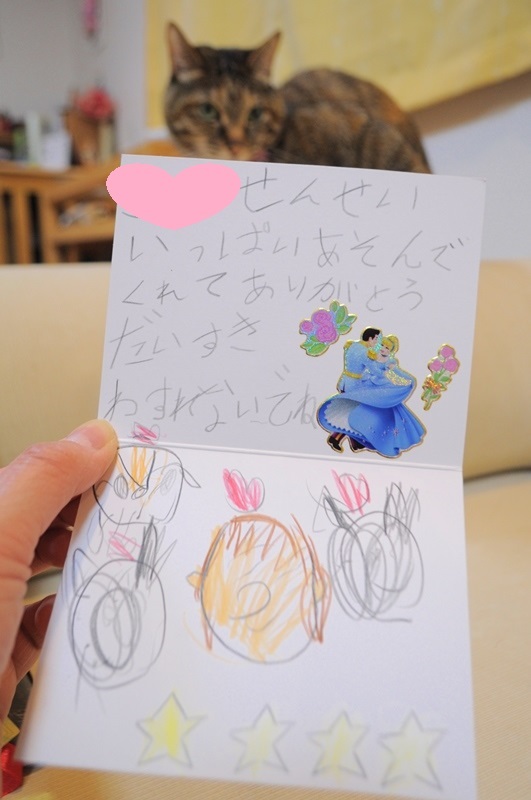 せんせい
いっぱいあそんで
くれてありがとう
だいすき
わすれないでね